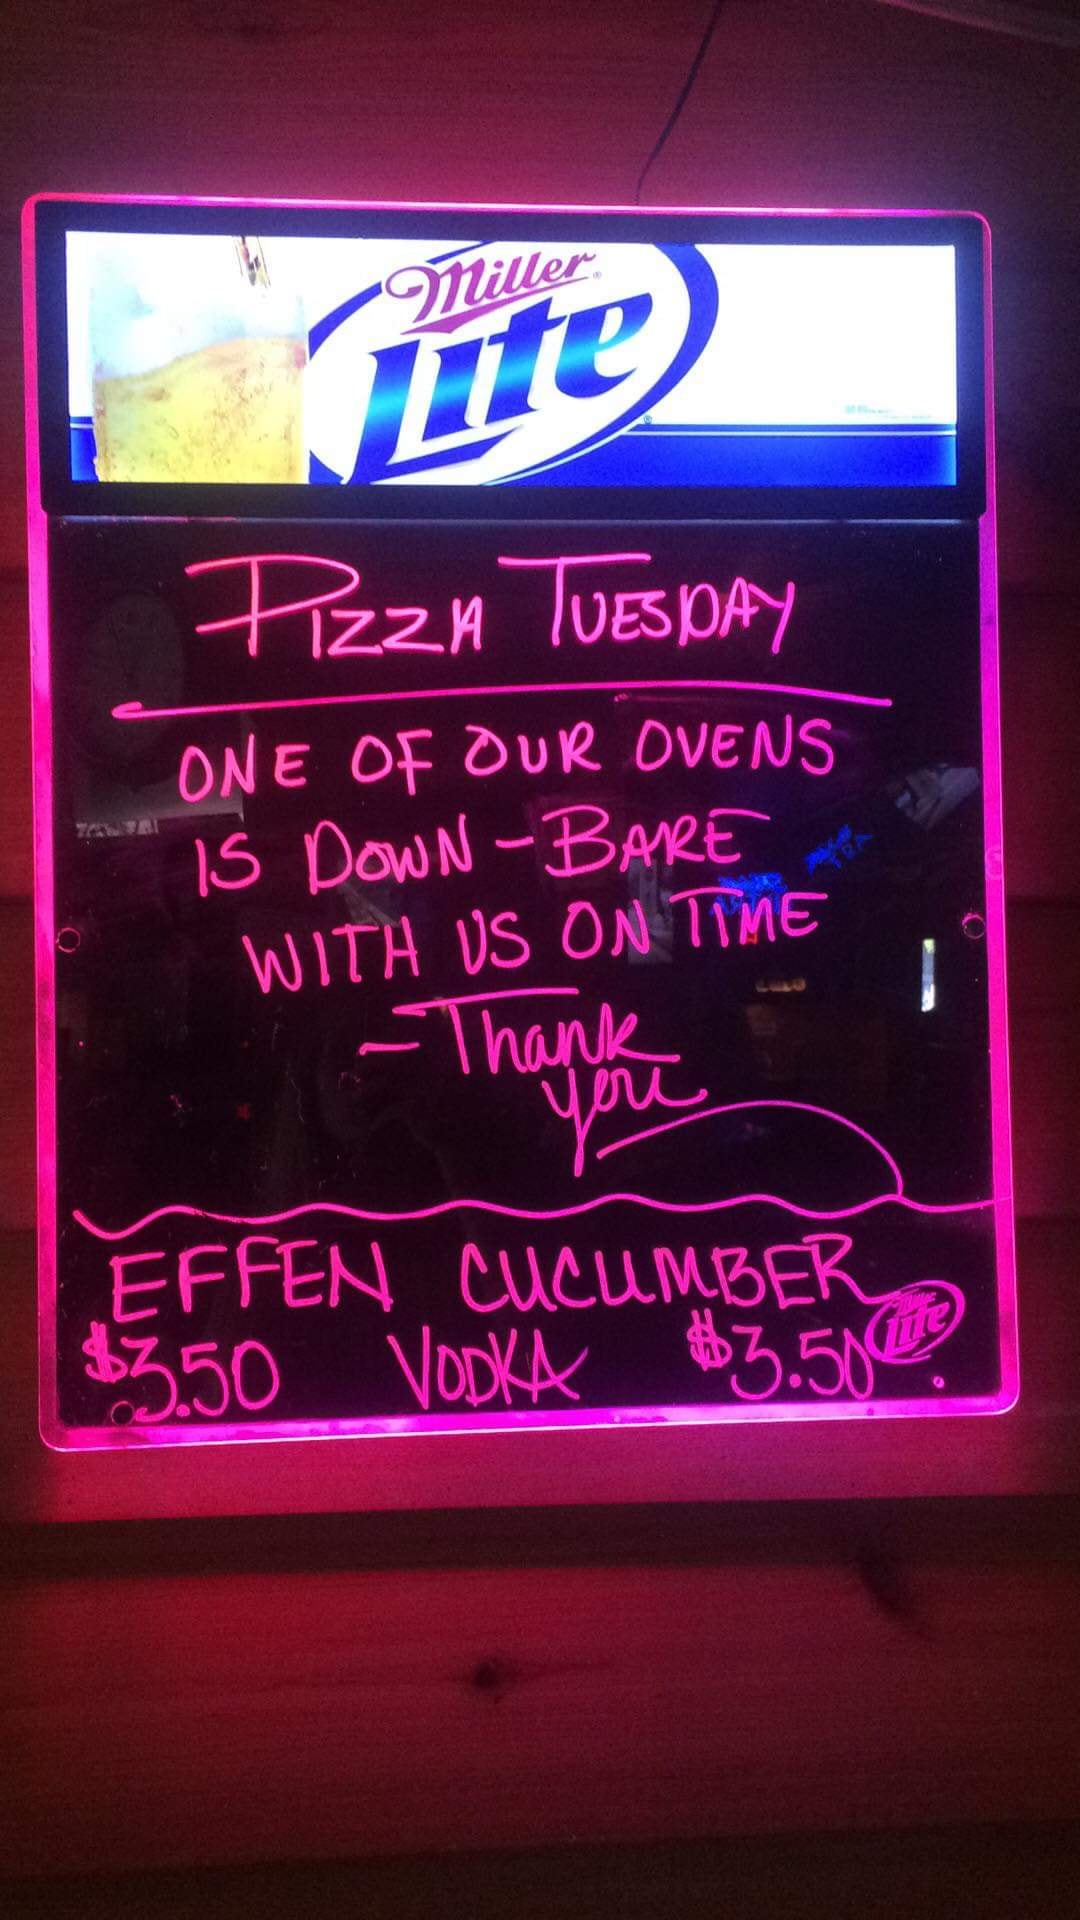 Miller
Lite
PIZZA TUESDAY
ONE OF OUR OVENS
IS DOWN - BARE
WITH US ON TIME
- Thank
you
EFFEN CUCUMBER
$3.50 VODKA $3.50
Miller
Lite